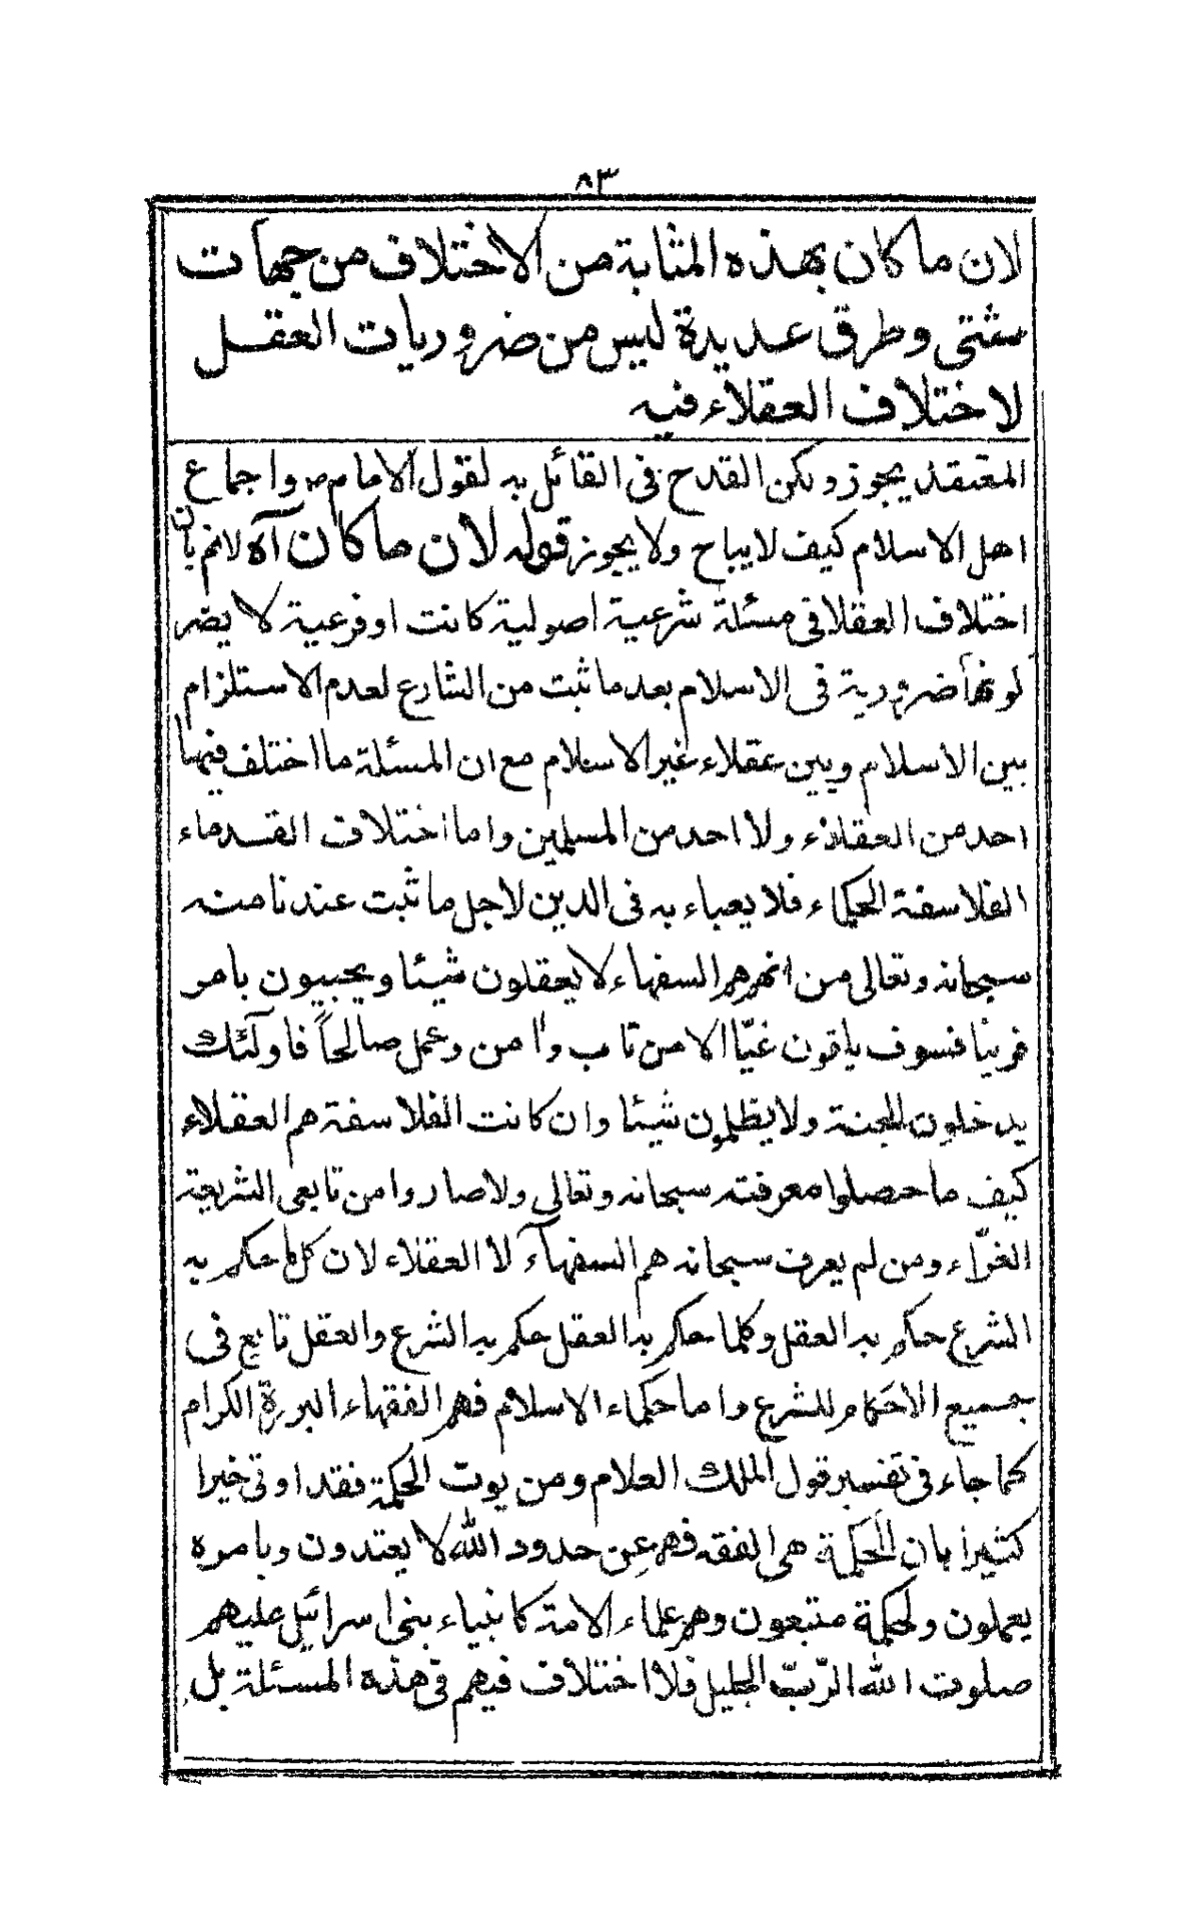 ٨٣
لان ما كان بهذه المثابة من الاختلاف من جهات
شتى وطرق عديدة ليس من ضروريات العقل
لاختلاف العقلاء فيه
المعتقد يجوز ويكن القدح فى القائل به لقول الامام واجماع
اهل الاسلام كيف لا يباح ولا يجوز قوله لان ما كان آه لانم بان
اختلاف العقلا فى مسئلة شرعية اصولية كانت او فرعية لا يضر
لونها ضرورية فى الاسلام بعد ما ثبت من الشارع لعدم الاستلزام
بين الاسلام وبين عقلاء غير الاسلام مع ان المسئلة ما اختلف فيها
احد من العقلاء ولا احد من المسلمين واما اختلاف القدماء
الفلاسفة الحكماء فلا يعباء به فى الدين لاجل ما ثبت عندنا منه
سبحانه وتعالى من انهم هم السفهاء لا يعقلون شيئا ويجيبون بامر
فسوف يلقون غيّا الا من تاب وامن وعمل صالحاً فاولئك
يدخلون الجنة ولا يظلمون شيئا وان كانت الفلاسفة هم العقلاء
كيف ما حصلوا معرفته سبحانه وتعالى ولا صاروا من تابعى الشريعة
الغرّاء ومن لم يعرف سبحانه هم السفهآء لا العقلاء لان كل ما حكم به
الشرع حكم به العقل وكلما حكم به العقل حكم به الشرع والعقل تابع فى
جميع الاحكام للشرع واما حكماء الاسلام فهم الفقهاء البررة الكرام
كما جاء فى تفسير قول الملك العلام ومن يوت الحكمة فقد اوتى خيرا
كثيرا بان الحكمة هى الفقه فهم عن حدود الله لا يعتدون وبامره
يعملون ولحكمة متبعون وهم علماء الامة كانبياء بنى اسرائيل عليهم
صلوت الله الرّبّ الجليل فلا اختلاف فيهم فى هذه المسئلة بل